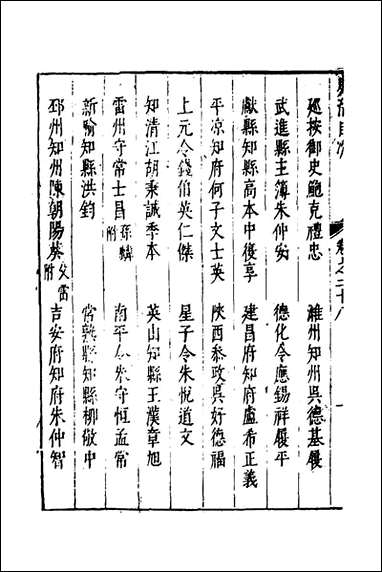 卷之二十八
廵按御史鮑克禮忠
濰州知州吳德基履
武進縣主簿朱仲安
德化令應錫祥履平
獻縣知縣高本中後享
建昌府知府盧希正義
平凉知府何子文士英
陝西叅政吳好德福
上元令錢伯英仁傑
星子令朱悅道文
知清江胡秉誠季本
英山知縣王漢章旭
雷州守常士昌 孫轔附
南平令朱守恒孟常
新喻知縣洪鈞
常熟縣知縣柳敬中
邳州知州陳朝陽葵 父雷附
吉安府知府朱仲智